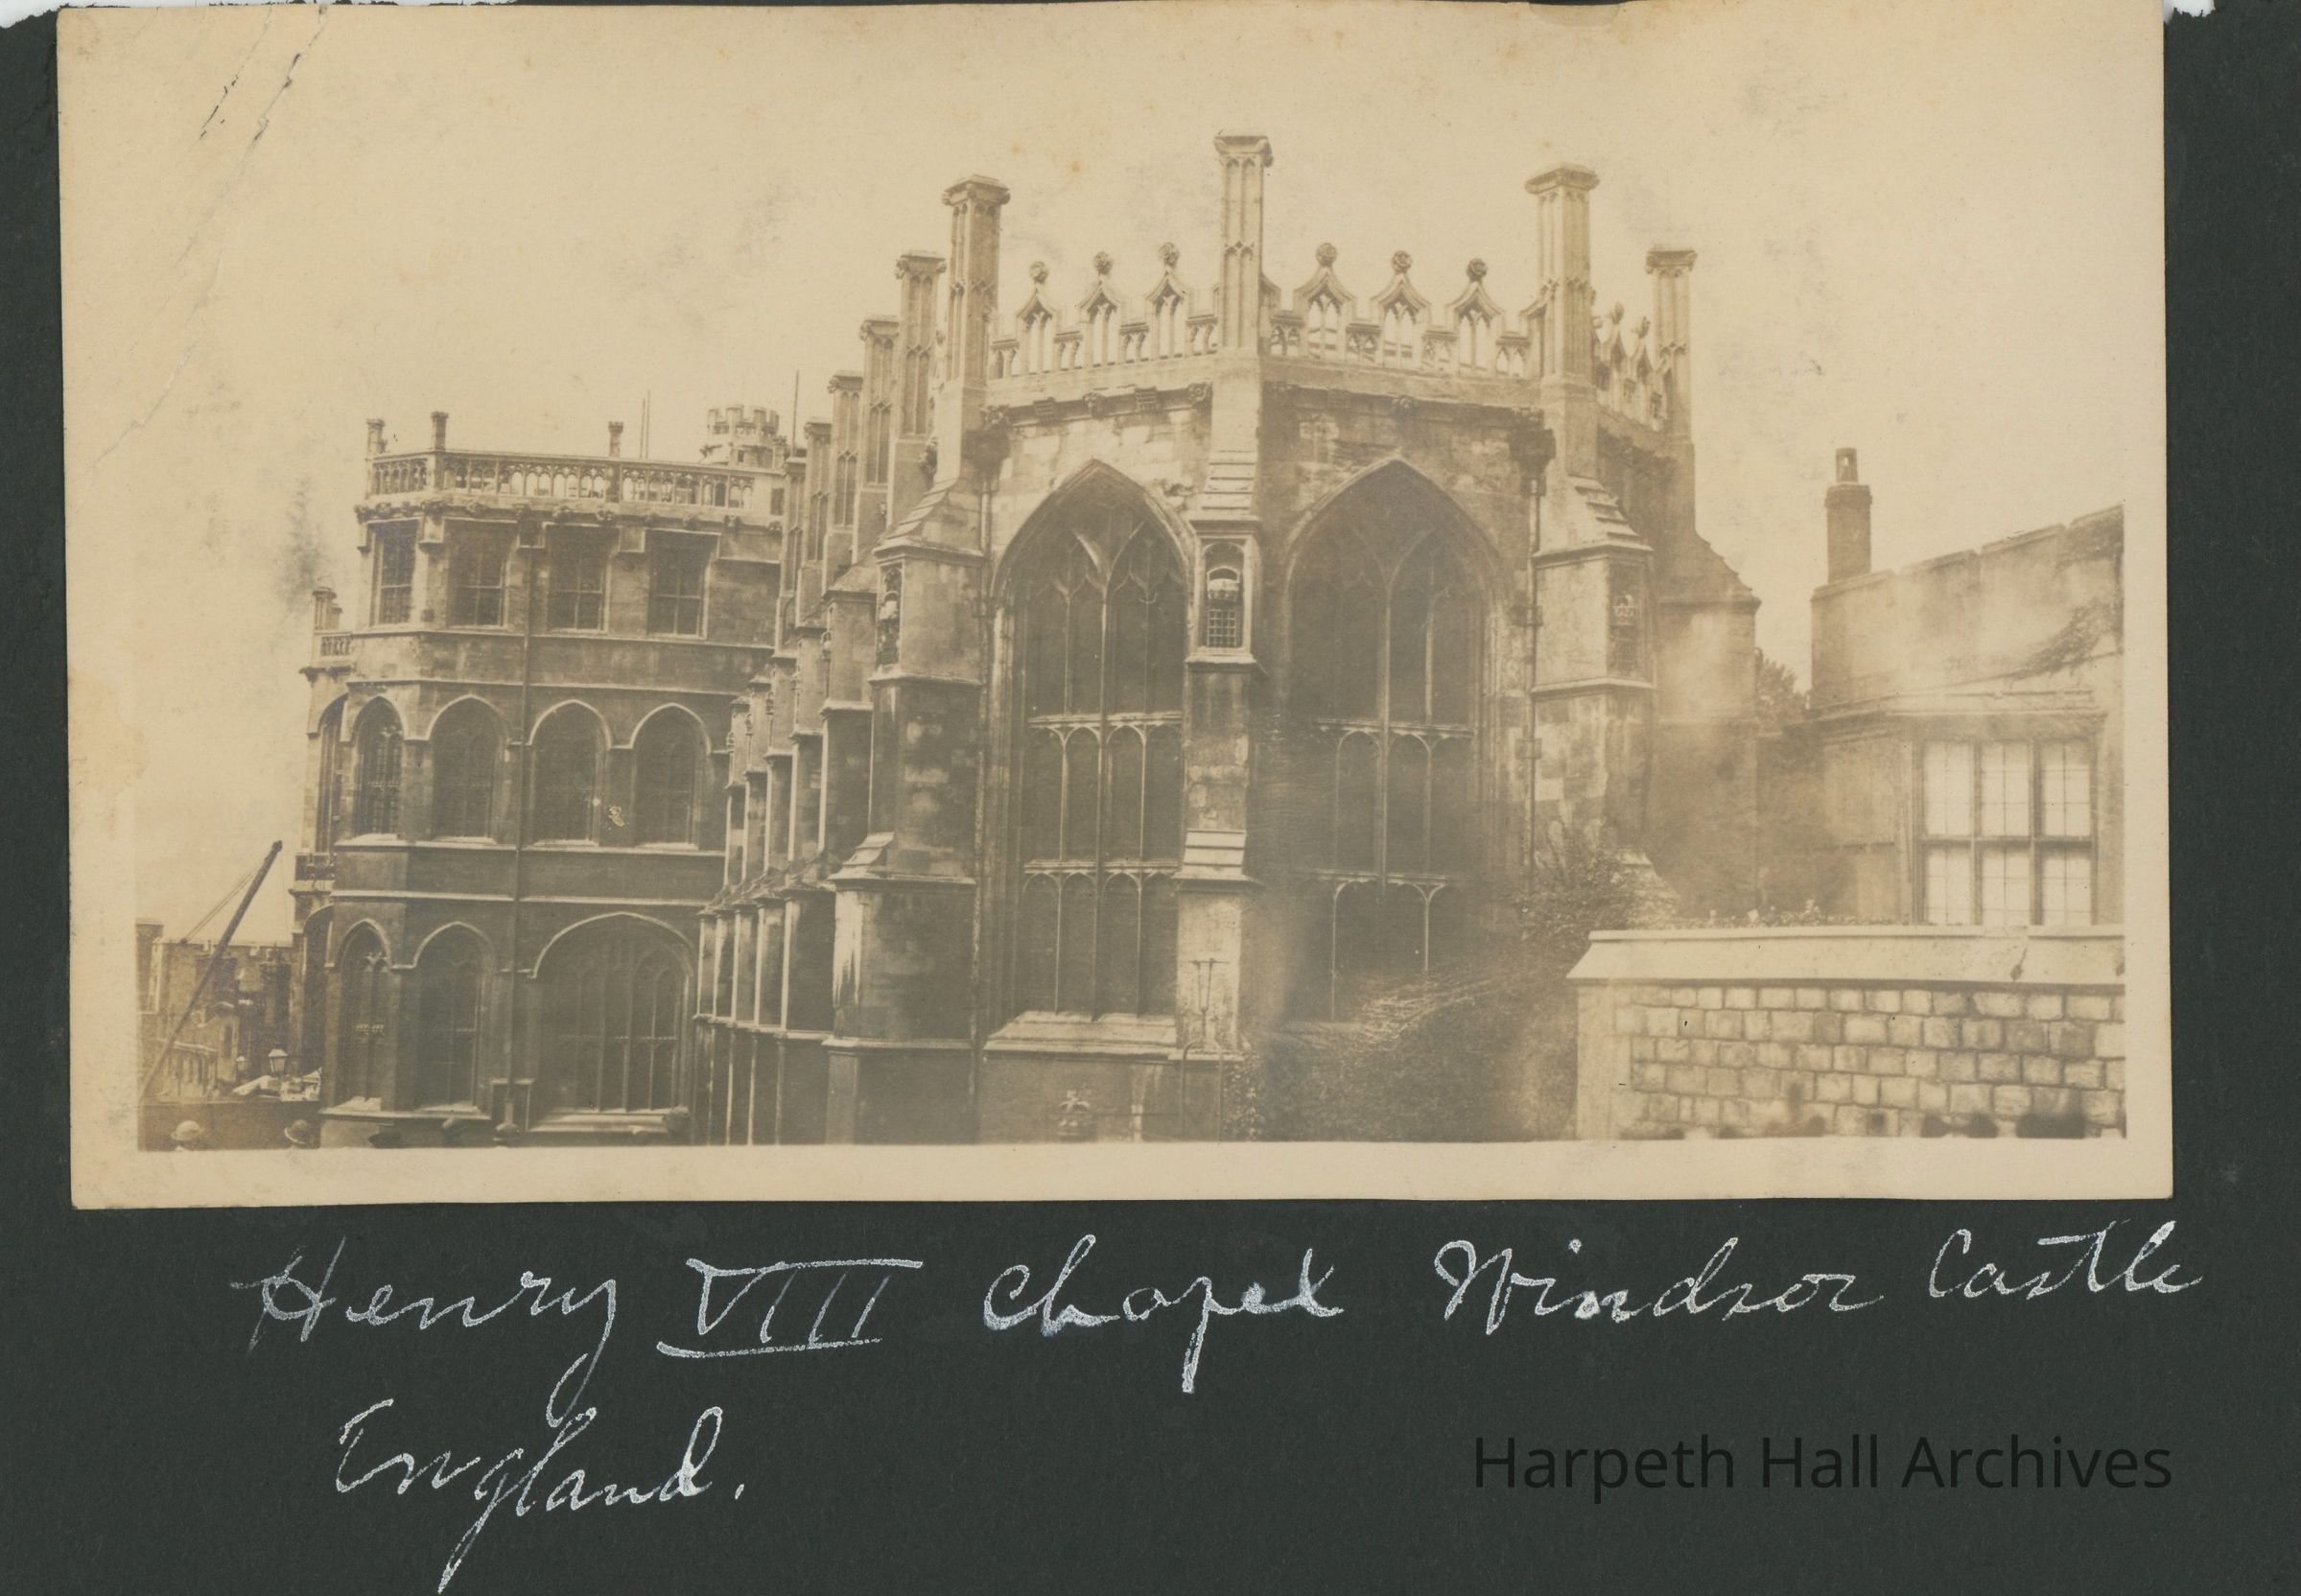 Henry VIII Chapel Windsor Castle
England.
Harpeth Hall Archives